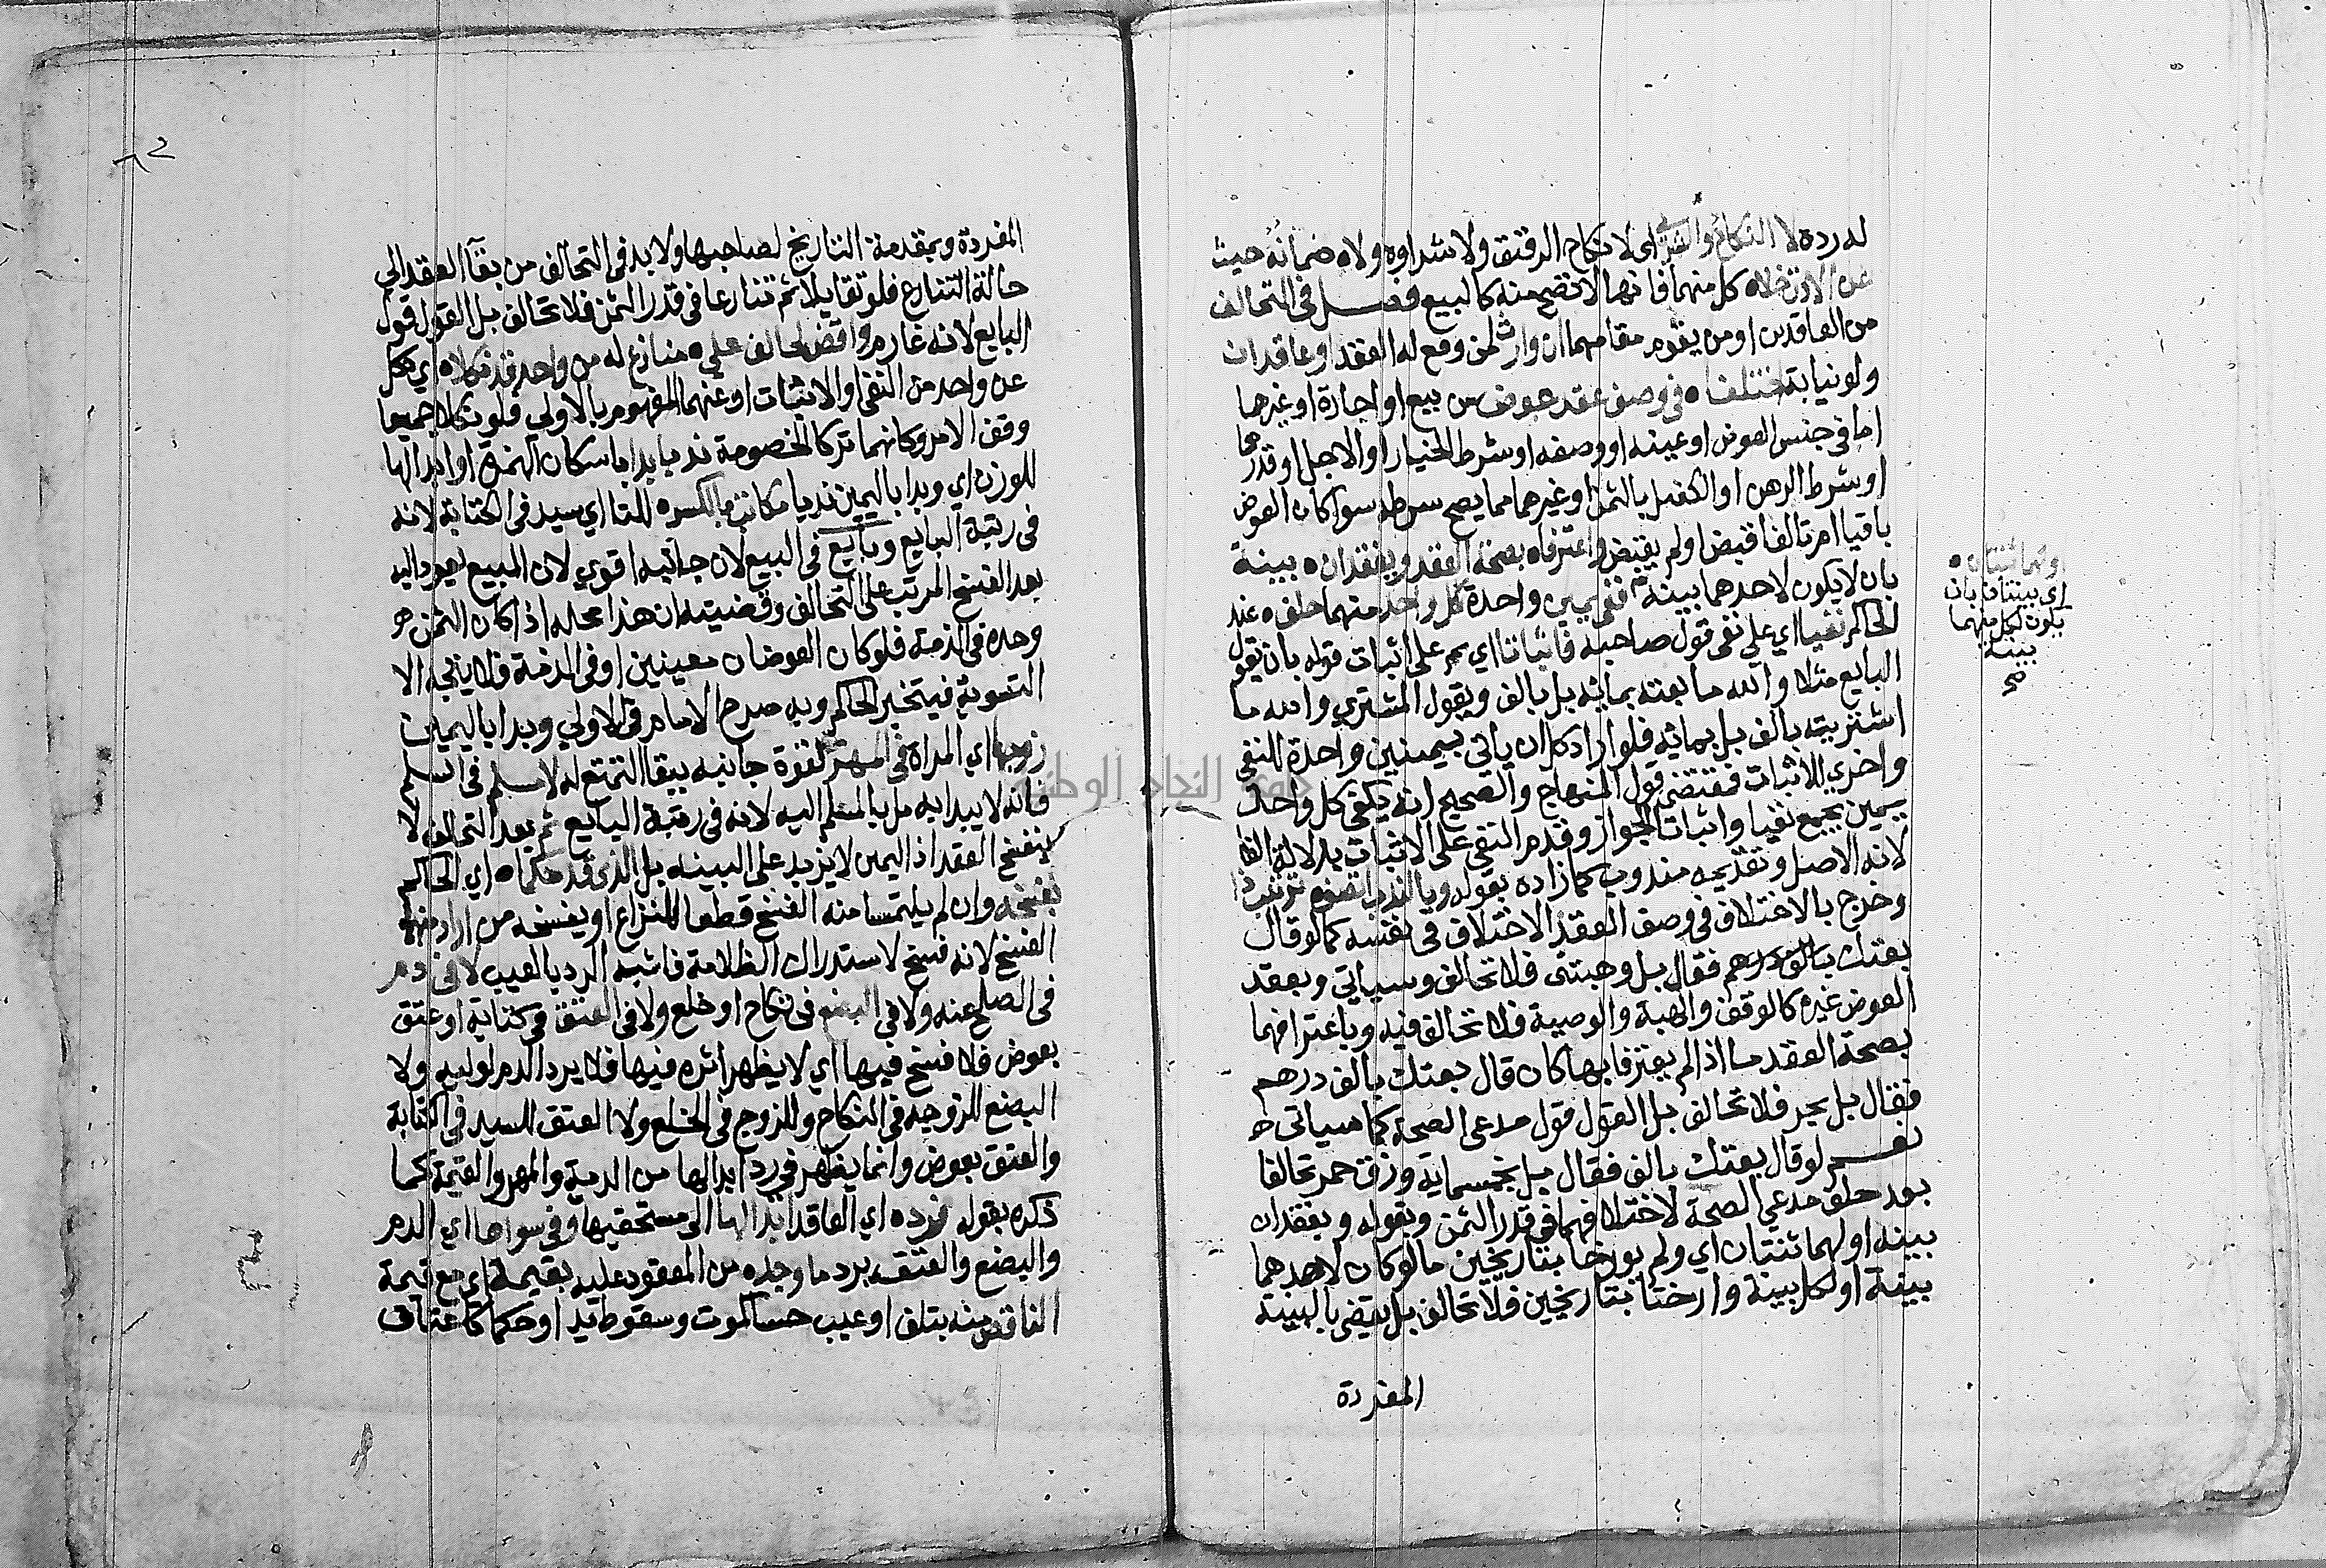 له رده لا النكاح والشرى اى لا نكاح الرقيق ولا شراوه ولا ضمانه حيث
عن الاذن خلاه كل منهما فانها لا تصح منه كالبيع فصل فى التحالف
من العاقدين او من يقوم مقامهما ان وارث لمن وقع له العقد او عاقدان
ولو نيابة اختلفا في وصف عقد عوض من بيع او اجارة او غيرها
اما في جنس العوض او عينه او وصفه او شرط الخيار او الاجل او قدرهما
او شرط الرهن او الكفيل بالثمن او غيرهما مما يصح شرطه سوا كان العوض
باقيا ام تالفا قبض او لم يقبض واعترفا بصحة العقد ويفقدان بينة
بان لا يكون لاحدهما بينة ففي يمين واحدة كل واحد منهما حلف عند
الحاكم نفيا اي على نفى قول صاحبه فاثباتا اي ثم على اثبات قوله بان يقول
البايع مثلا والله ما بعته بمائه بل بالف ويقول المشتري والله ما
اشتريته بالف بل بمائه فلو اراد كل ان ياتى بيمينين واحدة للنفي
واخري للاثبات فمقتضى قول المنهاج والصحيح انه يكفى كل واحد
يمين يجمع نفيا واثباتا الجواز وقدم النفي على الاثبات بدلالة الفا
لانه الاصل وتقديمه مندوب كما زاده بقوله وبالندب اتصف ترتيب ذا
وخرج بالاختلاف في وصف العقد الاختلاف في نفسه كما لو قال
بعتك بالف درهم فقال بل وهبتنى فلا تحالف وسياتي وبعقد
العوض غيره كالوقف والهبة والوصية فلا تحالف فيه وباعترافهما
بصحة العقد ما اذا لم يعترفا بها كان قال بعتك بالف درهم
فقال بل بحر فلا تحالف بل القول قول مدعى الصحة كما سياتى
نعم لو قال بعتك بالف فقال بل بخمسماية وزق خمر تحالفا
بعد حلف مدعي الصحة لاختلافهما في قدر الثمن وبقوله ويفقدان
بينه او لهما ثنتان اي ولم يورخا بتاريخين ما لو كان لاحدهما
بينة او لكل بينة وارختا بتاريخين فلا تحالف بل يقضى بالبينة
المفردة
او لهما ثنتان
اي بينتان بان
يكون لكل منهما
بينة
صح
٦٢
المفردة وبمقدمة التاريخ لصاحبها ولا بد في التحالف من بقآ العقد الي
حالة التنازع فلو تقايلا ثم تنازعا في قدر الثمن فلا تحالف بل القول قول
البايع لانه غارم واقض لحالف علي منازع له من واحد قد نكلا اي نكل
عن واحد من النفي او الاثبات او عنهما المفهوم بالاولي فلو نكلا جميعا
وقف الامر وكانهما تركا الخصومة ندبا بدا باسكان الهمزة او ابدالها
للوزن اي وبدا باليمين ندبا مكاتب بالكسر للتا اي سيد في الكتابة لانه
في رتبة البايع وبايع في البيع لان جانبه اقوي لان المبيع يعود اليه
بعد الفسخ المرتب على التحالف وقضيته ان هذا محله اذا كان الثمن
وحده في الذمة فلو كان العوضان معينين او في الذمة فلا يتجه الا
التسوية فيتخير الحاكم وبه صرح الامام في الاولي وبدا باليمين
زوجها اي المراة في المهر لقوة جانبه ببقا التمتع له لا مسلم فى السلم
فانه لا يبدا به بل بالمسلم اليه لانه في رتبة البايع ثم بعد التحالف لا
ينفسخ العقد اذ اليمين لا يزيد على البينه بل الذى قد حكما اي الحاكم
بفسخه وان لم يلتمسا منه الفسخ قطعا للنزاع او يفسخه من اراد منهما
الفسخ لانه فسخ لاستدراك الظلامة فاشبه الرد بالعيب لا في دم
في الصلح عنه ولا في البضع في نكاح او خلع ولا في العتق في كتابة او عتق
بعوض فلا فسخ فيها اي لا يظهر اثره فيها فلا يرد الدم لوليه ولا
البضع للزوجه في النكاح وللزوج في الخلع ولا العتق للسيد في الكتابة
والعتق بعوض وانما يظهر في رد ابدالها من الدية والمهر والقيمة كما
ذكره بقوله فرده اي العاقد ابدالها الى مستحقيها وفي سواها اي الدم
والبضع والعتق يرد ما وجده من المعقود عليه بقيمة اي مع قيمة
الناقص منه بتلف او عيب حسا كموت وسقوط يد او حكما كاعتاق